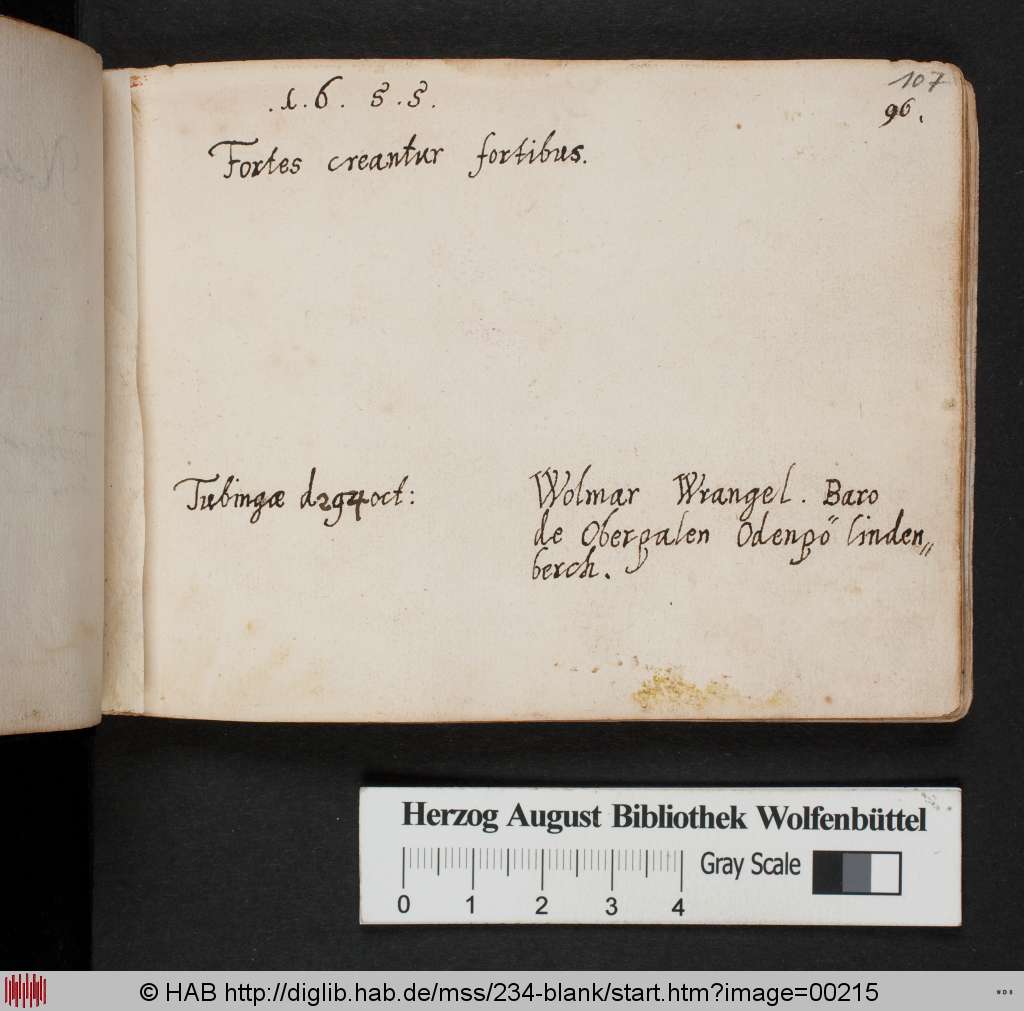 107
.1.6. 5.5.
96.
Fortes creantur fortibus.
Tubingæ d 29 oct:
Wolmar Wrangel. Baro
de Oberpalen Odenpö linden„
berch.
Herzog August Bibliothek Wolfenbüttel
Gray Scale
0 1 2 3 4
© HAB http://diglib.hab.de/mss/234-blank/start.htm?image=00215